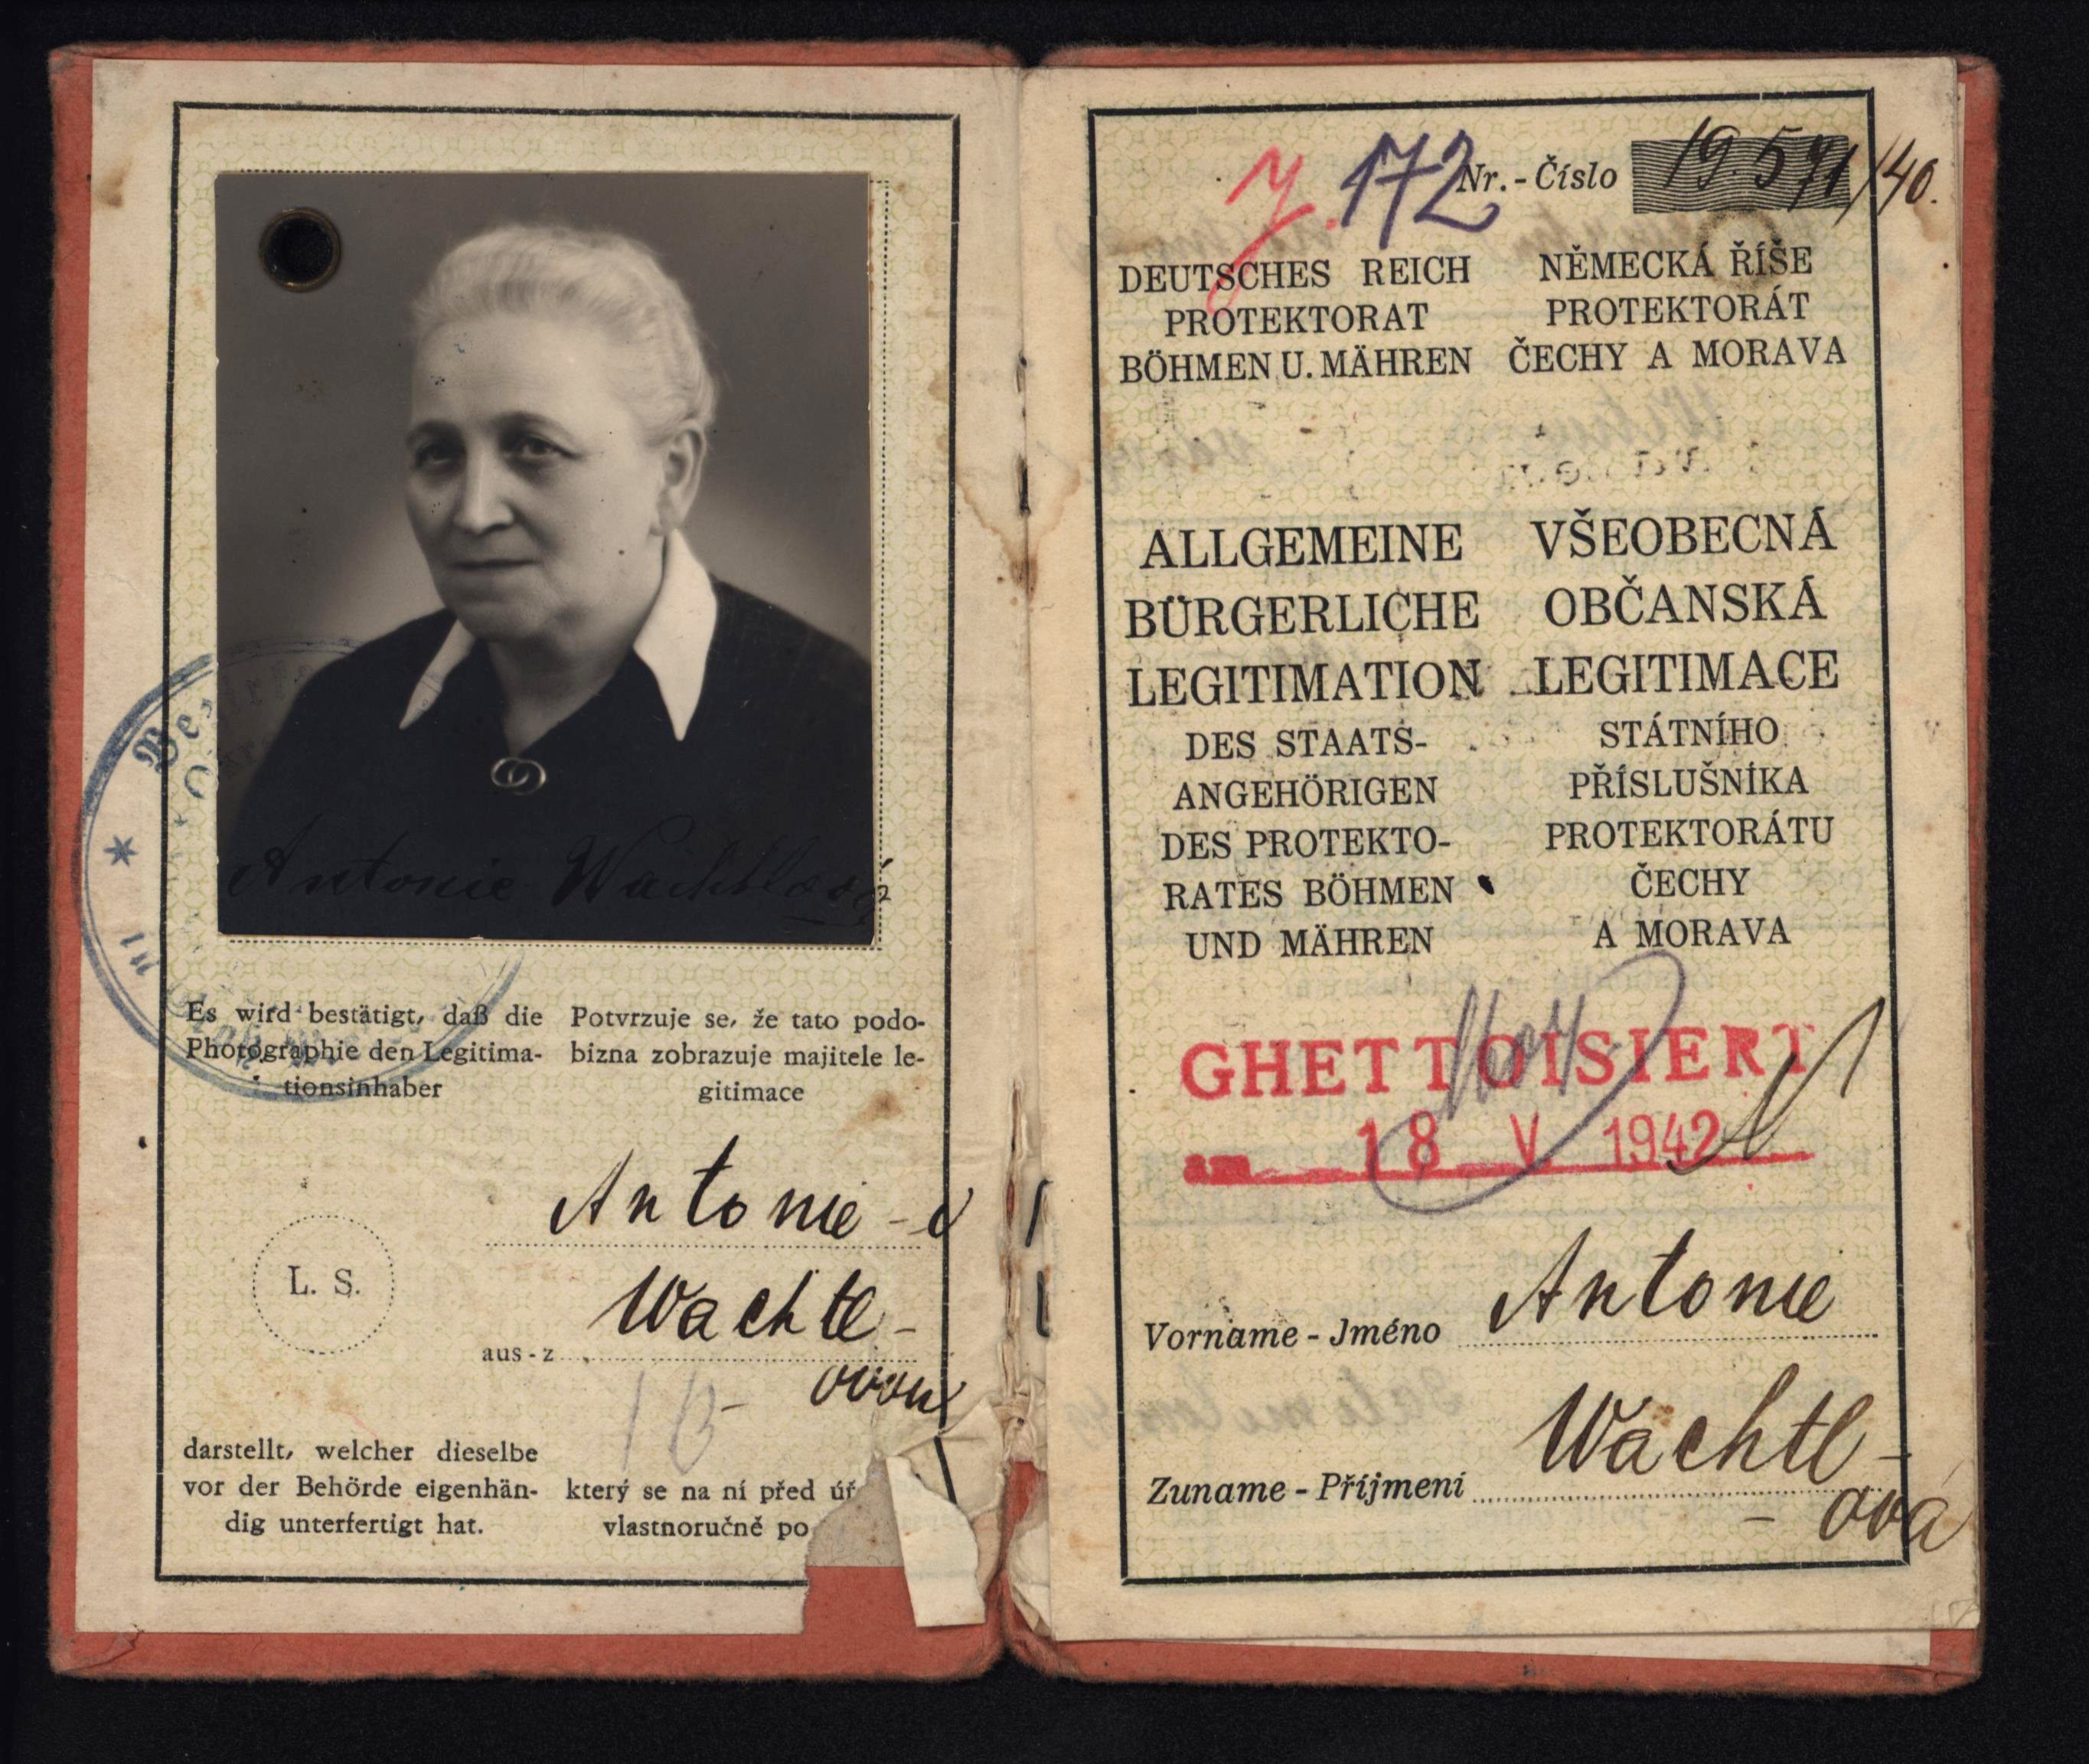 Antonie Wachtlová
Es wird bestätigt, daß die
Photographie den Legitima-
tionsinhaber
Potvrzuje se, že tato podo-
bizna zobrazuje majitele le-
gitimace
Antonie -
L. S.
aus - z Wachtl -
ovou
darstellt, welcher dieselbe
vor der Behörde eigenhän-
dig unterfertigt hat.
který se na ní před
vlastnoručně
172
Nr. - Číslo 19.571/40.
DEUTSCHES REICH
PROTEKTORAT
BÖHMEN U. MÄHREN
NĚMECKÁ ŘÍŠE
PROTEKTORÁT
ČECHY A MORAVA
ALLGEMEINE
BÜRGERLICHE
LEGITIMATION
DES STAATS-
ANGEHÖRIGEN
DES PROTEKTO-
RATES BÖHMEN
UND MÄHREN
VŠEOBECNÁ
OBČANSKÁ
LEGITIMACE
STÁTNÍHO
PŘÍSLUŠNÍKA
PROTEKTORÁTU
ČECHY
A MORAVA
GHETTOISIERT
am 18 V 1942
Vorname - Jméno Antonie
Zuname - Příjmení Wachtl -
- ová